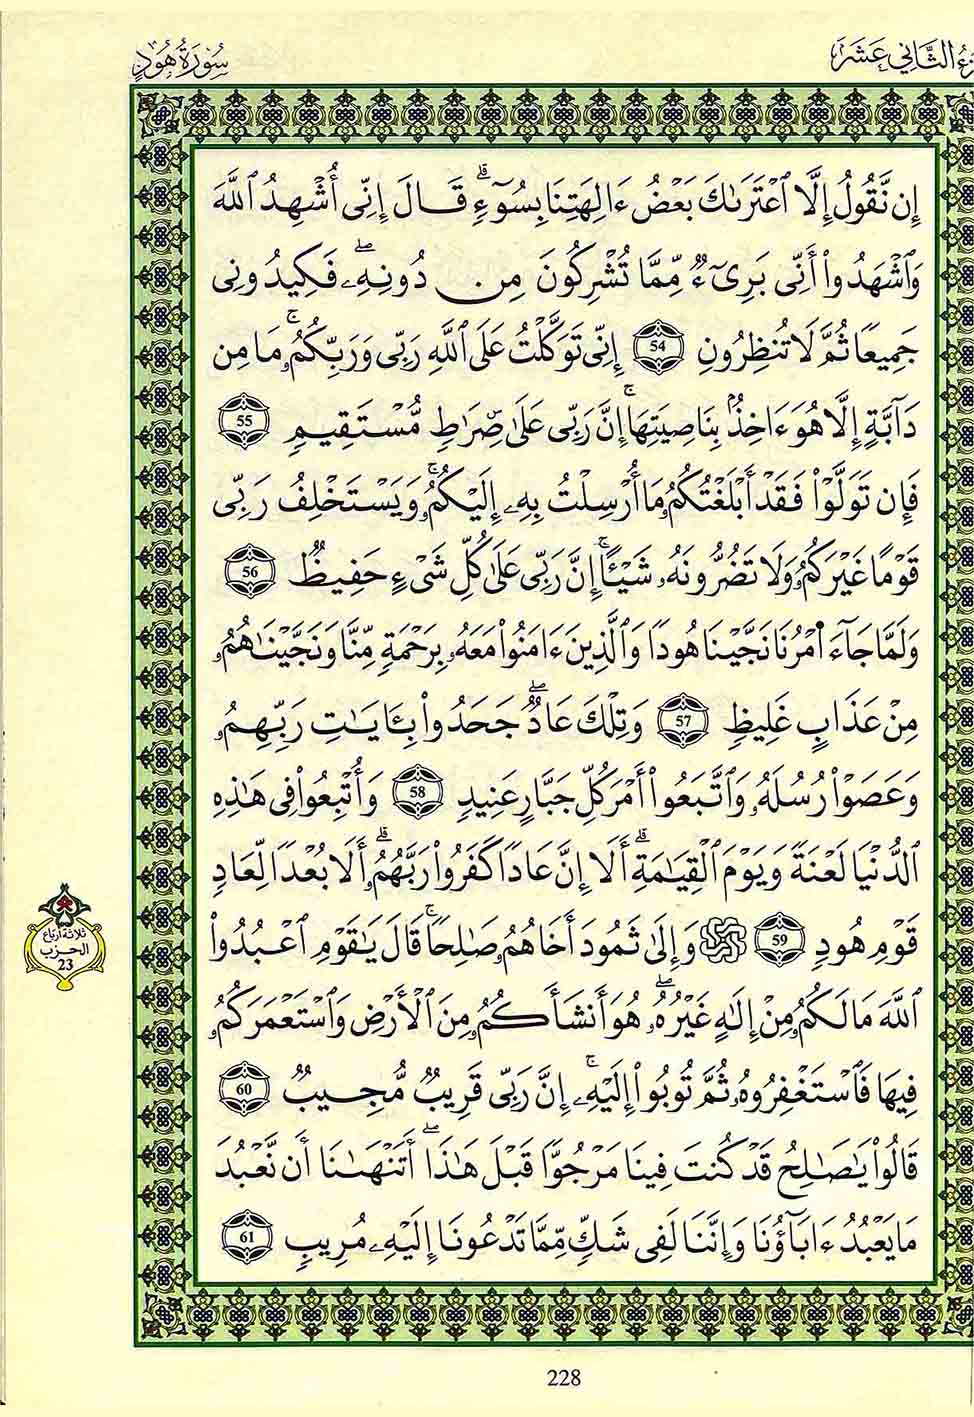 الجزء الثاني عشر
سُورَةُ هُودٍ
إِن نَّقُولُ إِلَّا ٱعْتَرَىٰكَ بَعْضُ ءَالِهَتِنَا بِسُوٓءٍۗ قَالَ إِنِّى أُشْهِدُ ٱللَّهَ
وَٱشْهَدُوٓا۟ أَنِّى بَرِىٓءٌ مِّمَّا تُشْرِكُونَ مِن دُونِهِۦۖ فَكِيدُونِى
جَمِيعًا ثُمَّ لَا تُنظِرُونِ 54 إِنِّى تَوَكَّلْتُ عَلَى ٱللَّهِ رَبِّى وَرَبِّكُمُۥۚ مَا مِن
دَآبَّةٍ إِلَّا هُوَ ءَاخِذٌۢ بِنَاصِيَتِهَآۚ إِنَّ رَبِّى عَلَىٰ صِرَٰطٍ مُّسْتَقِيمٍ 55
فَإِن تَوَلَّوْا۟ فَقَدْ أَبْلَغْتُكُمُۥ مَا أُرْسِلْتُ بِهِۦ إِلَيْكُمُۥۚ وَيَسْتَخْلِفُ رَبِّى
قَوْمًا غَيْرَكُمُۥ وَلَا تَضُرُّونَهُۥ شَيْـًٔاۚ إِنَّ رَبِّى عَلَىٰ كُلِّ شَىْءٍ حَفِيظٌ 56
وَلَمَّا جَآءَ امْرُنَا نَجَّيْنَا هُودًا وَٱلَّذِينَ ءَامَنُوا۟ مَعَهُۥ بِرَحْمَةٍ مِّنَّا وَنَجَّيْنَٰهُمُۥ
مِنْ عَذَابٍ غَلِيظٍ 57 وَتِلْكَ عَادٌۖ جَحَدُوا۟ بِـَٔايَٰتِ رَبِّهِمُۥ
وَعَصَوْا۟ رُسُلَهُۥ وَٱتَّبَعُوٓا۟ أَمْرَ كُلِّ جَبَّارٍ عَنِيدٍ 58 وَأُتْبِعُوا۟ فِى هَٰذِهِ
ٱلدُّنْيَا لَعْنَةً وَيَوْمَ ٱلْقِيَٰمَةِۗ أَلَا إِنَّ عَادًا كَفَرُوا۟ رَبَّهُمُۥۗ أَلَا بُعْدًا لِّعَادٍ
قَوْمِ هُودٍ 59 وَإِلَىٰ ثَمُودَ أَخَاهُمُۥ صَٰلِحًاۚ قَالَ يَٰقَوْمِ ٱعْبُدُوا۟
ٱللَّهَ مَا لَكُمُۥ مِنْ إِلَٰهٍ غَيْرُهُۥۖ هُوَ أَنشَأَكُمُۥ مِنَ ٱلْأَرْضِ وَٱسْتَعْمَرَكُمُۥ
فِيهَا فَٱسْتَغْفِرُوهُۥ ثُمَّ تُوبُوٓا۟ إِلَيْهِۦۚ إِنَّ رَبِّى قَرِيبٌ مُّجِيبٌ 60
قَالُوا۟ يَٰصَٰلِحُ قَدْ كُنتَ فِينَا مَرْجُوًّا قَبْلَ هَٰذَاۖ أَتَنْهَىٰنَا أَن نَّعْبُدَ
مَا يَعْبُدُ ءَابَآؤُنَا وَإِنَّنَا لَفِى شَكٍّ مِّمَّا تَدْعُونَا إِلَيْهِۦ مُرِيبٍ 61
ثلاثة أرباع
الحزب
23
228